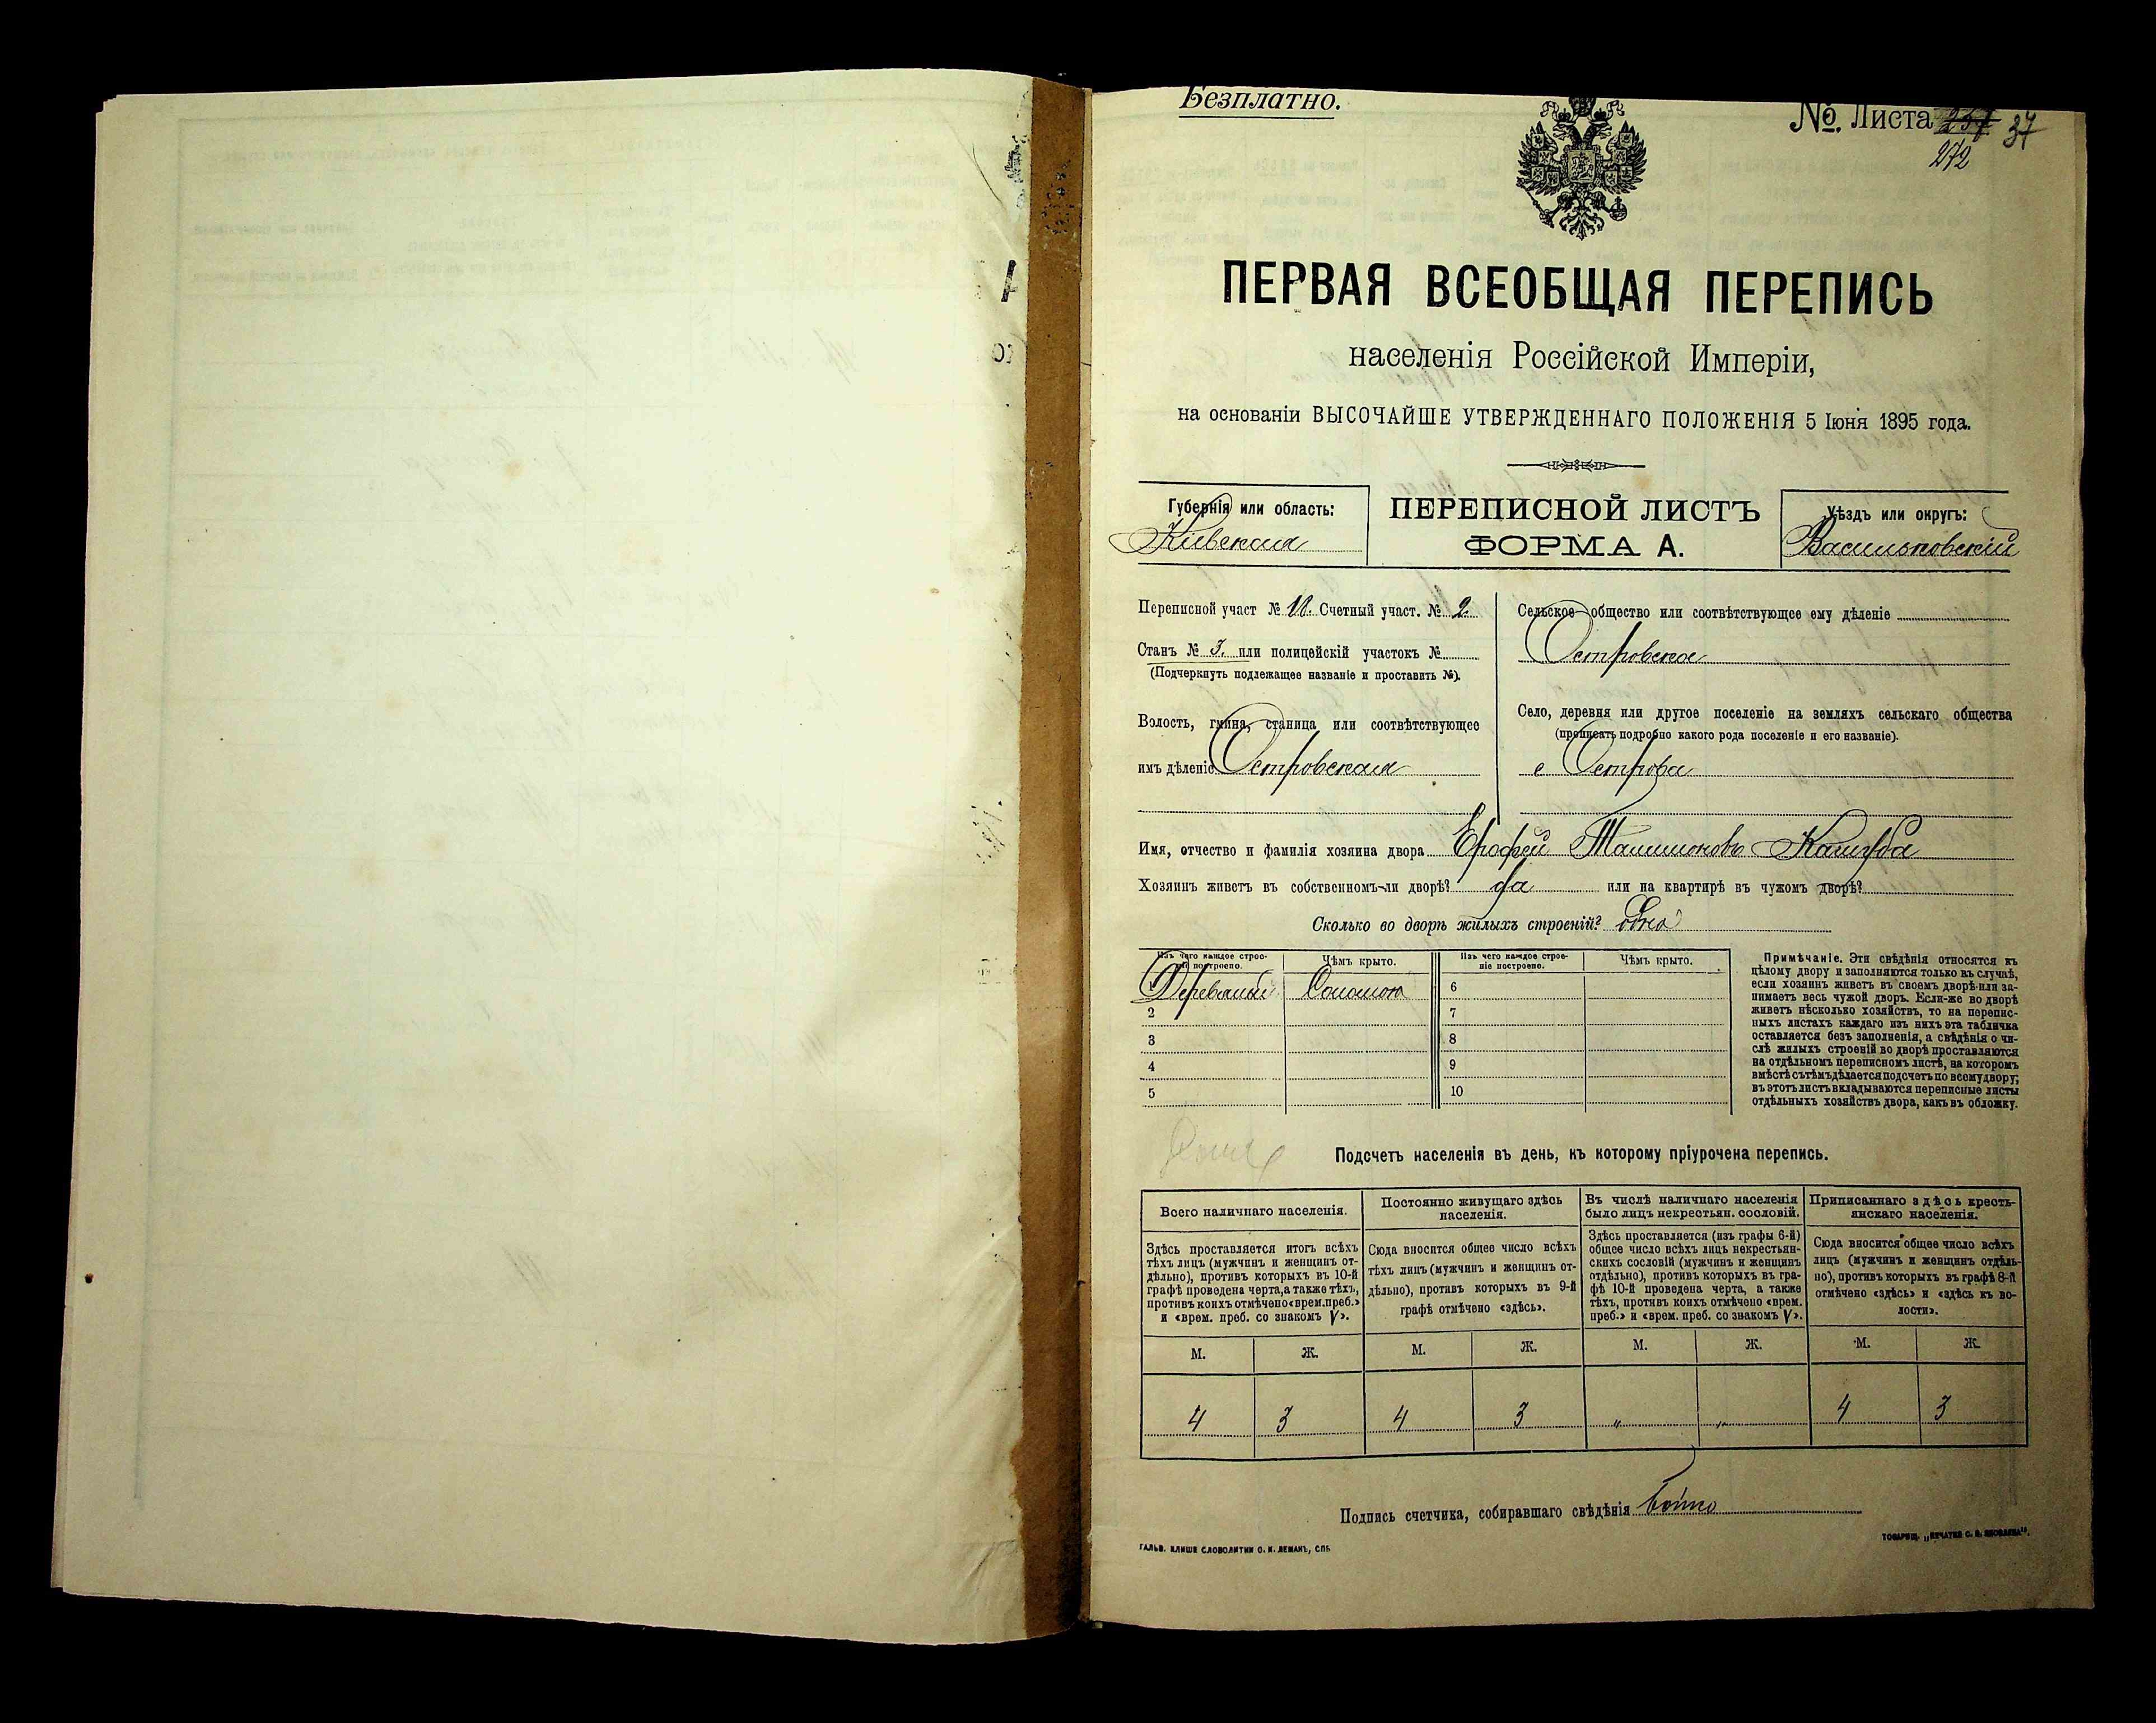 Безплатно.
№ Листа 237 37
272
ПЕРВАЯ ВСЕОБЩАЯ ПЕРЕПИСЬ
населенія Россійской Имперіи,
на основаніи ВЫСОЧАЙШЕ УТВЕРЖДЕННАГО ПОЛОЖЕНІЯ 5 Іюня 1895 года.
Губернія или область:
Кіевская
ПЕРЕПИСНОЙ ЛИСТЪ
ФОРМА А.
Уѣздъ или округъ:
Васильковскій
Переписной участ № 10. Счетный участ. № 2.
Станъ № 3. или полицейскій участокъ №
(Подчеркнуть подлежащее названіе и проставить №).
Волость, гмина, станица или соотвѣтствующее
имъ дѣленіе Островская
Сельское общество или соотвѣтствующее ему дѣленіе
Островское
Село, деревня или другое поселеніе на земляхъ сельскаго общества
(прописать подробно какого рода поселеніе и его названіе).
с Острова
Имя, отчество и фамилія хозяина двора Ерофей
Хозяинъ живетъ въ собственномъ-ли дворѣ? да или на квартирѣ въ чужомъ дворѣ?
Сколько во дворѣ жилыхъ строеній? одно
Изъ чего каждое строе-
ніе построено.
Чѣмъ крыто.
Изъ чего каждое строе-
ніе построено.
Чѣмъ крыто.
1 Деревяный Соломою 6
2 7
3 8
4 9
5 10
Примѣчаніе. Эти свѣдѣнія относятся къ
цѣлому двору и заполняются только въ случаѣ,
если хозяинъ живетъ въ своемъ дворѣ или за-
нимаетъ весь чужой дворъ. Если-же во дворѣ
живетъ нѣсколько хозяйствъ, то на перепис-
ныхъ листахъ каждаго изъ нихъ эта табличка
оставляется безъ заполненія, а свѣдѣнія о чи-
слѣ жилыхъ строеній во дворѣ проставляются
на отдѣльномъ переписномъ листѣ, на которомъ
вмѣстѣ съ тѣмъ дѣлается подсчетъ по всему двору;
въ этотъ листъ вкладываются переписные листы
отдѣльныхъ хозяйствъ двора, какъ въ обложку.
Подсчетъ населенія въ день, къ которому пріурочена перепись.
Всего наличнаго населенія.
Здѣсь проставляется итогъ всѣхъ
тѣхъ лицъ (мужчинъ и женщинъ от-
дѣльно), противъ которыхъ въ 10-й
графѣ проведена черта, а также тѣхъ,
противъ коихъ отмѣчено «врем. преб.»
и «врем. преб. со знакомъ V».
Постоянно живущаго здѣсь
населенія.
Сюда вносится общее число всѣхъ
тѣхъ лицъ (мужчинъ и женщинъ от-
дѣльно), противъ которыхъ въ 9-й
графѣ отмѣчено «здѣсь».
Въ числѣ наличнаго населенія
было лицъ некрестьян. сословій.
Здѣсь проставляется (изъ графы 6-й)
общее число всѣхъ лицъ некрестьян-
скихъ сословій (мужчинъ и женщинъ
отдѣльно), противъ которыхъ въ гра-
фѣ 10-й проведена черта, а также
тѣхъ, противъ коихъ отмѣчено «врем.
преб.» и «врем. преб. со знакомъ V».
Приписаннаго здѣсь кресть-
янскаго населенія.
Сюда вносится общее число всѣхъ
лицъ (мужчинъ и женщинъ отдѣль-
но), противъ которыхъ въ графѣ 8-й
отмѣчено «здѣсь» и «здѣсь къ во-
лости».
М. Ж. М. Ж. М. Ж. М. Ж.
4 3 4 3 " " 4 3
Подпись счетчика, собиравшаго свѣдѣнія Бойко
ГАЛЬВ. КЛИШЕ СЛОВОЛИТНИ О. И. ЛЕМАНЪ, СПБ.
ТОВАРИЩ. „ПЕЧАТНЯ С. П. ЯКОВЛЕВА“.